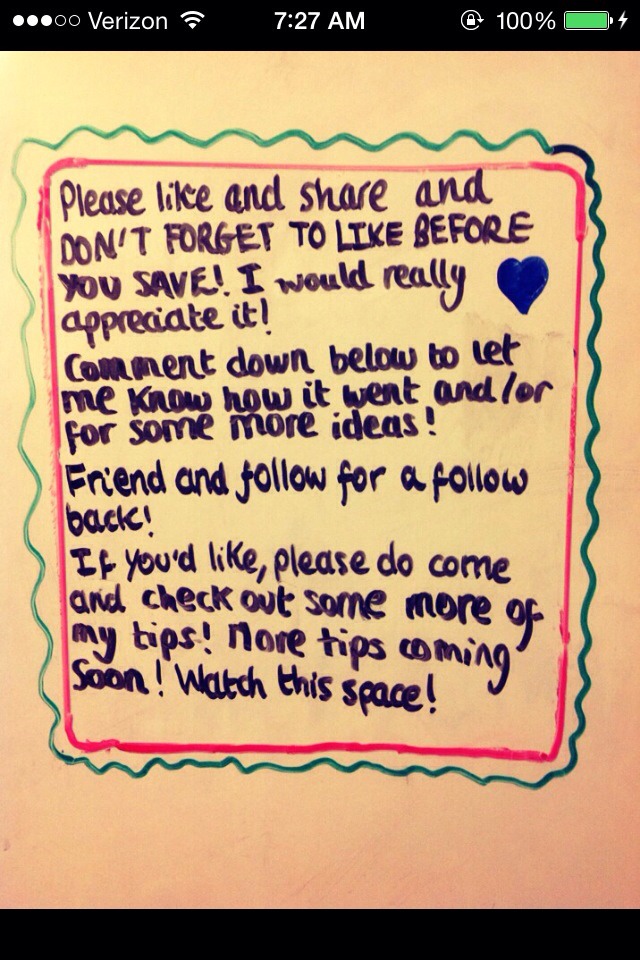 Verizon 7:27 AM 100%
Please like and share and
DON'T FORGET TO LIKE BEFORE
YOU SAVE! I would really
appreciate it!
Comment down below to let
me know how it went and/or
for some more ideas!
Friend and follow for a follow
back!
If you'd like, please do come
and check out some more of
my tips! More tips coming
Soon! Watch this space!